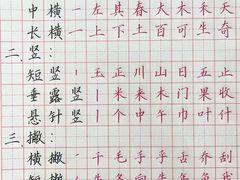 中横 一 左其春大木禾天
长横 一 上下土百可生奇
二.竖:
短竖 丨 玉正川山日五止
垂露竖 丨 米来木门果收
悬针竖 丨 个中午巾叶什
三.撇:
横撇 千毛手乎舌乔刮